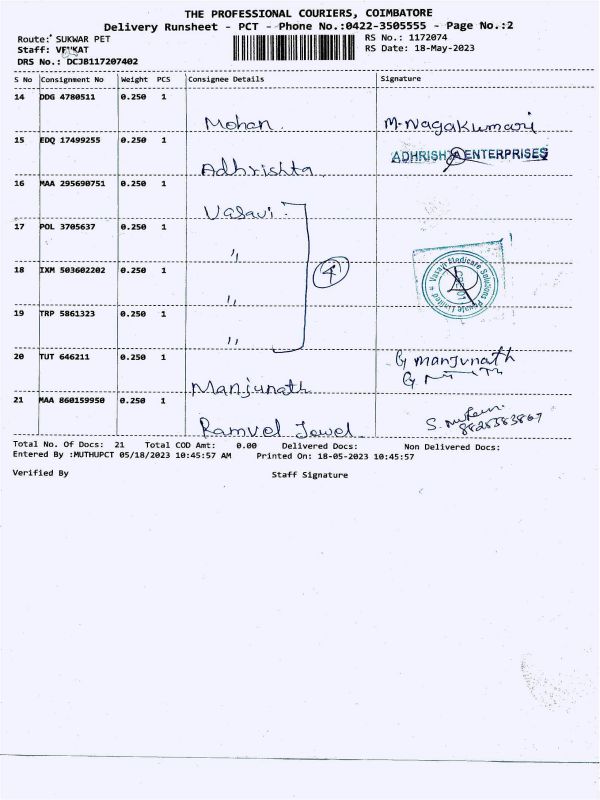 THE PROFESSIONAL COURIERS, COIMBATORE
Delivery Runsheet - PCT - Phone No.:0422-3505555 - Page No.:2
Route: SUKWAR PET
RS No.: 1172074
Staff: VENKAT
RS Date: 18-May-2023
DRS No.: DCJB117207402
S No Consignment No Weight PCS Consignee Details Signature
14 DDG 4780511 0.250 1
Mohan. M. Nagakumari
15 EDQ 17499255 0.250 1
Adhrishta. ADHRISHTA ENTERPRISES
16 MAA 295690751 0.250 1
Vasavi
17 POL 3705637 0.250 1
"
4
18 IXM 503602202 0.250 1
"
Medicare Solutions Private Limited
19 TRP 5861323 0.250 1
"
20 TUT 646211 0.250 1
Manjunath G Manjunath
21 MAA 860159950 0.250 1
Ramvel Jewel
Total No. Of Docs: 21 Total COD Amt: 0.00 Delivered Docs: Non Delivered Docs:
Entered By :MUTHUPCT 05/18/2023 10:45:57 AM Printed On: 18-05-2023 10:45:57
Verified By Staff Signature